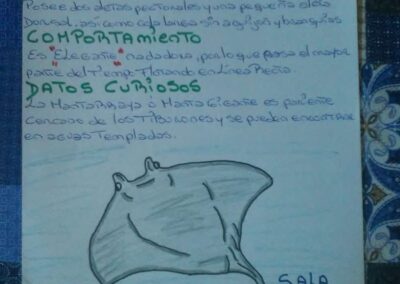 Posee dos aletas pectorales y una pequeña aleta
Dorsal, asi como cola larga sin aguijon y branquias
COMPORTAMIENTO
Es "Elegante" nadadora, por lo que pasa el mayor
parte del Tiempo Flotando en Linea Recta.
DATOS CURIOSOS
La Mantarraya o Manta Gigante es pariente
Cercano de los Tiburones y se pueden encontrar
en aguas Templadas.
SALA